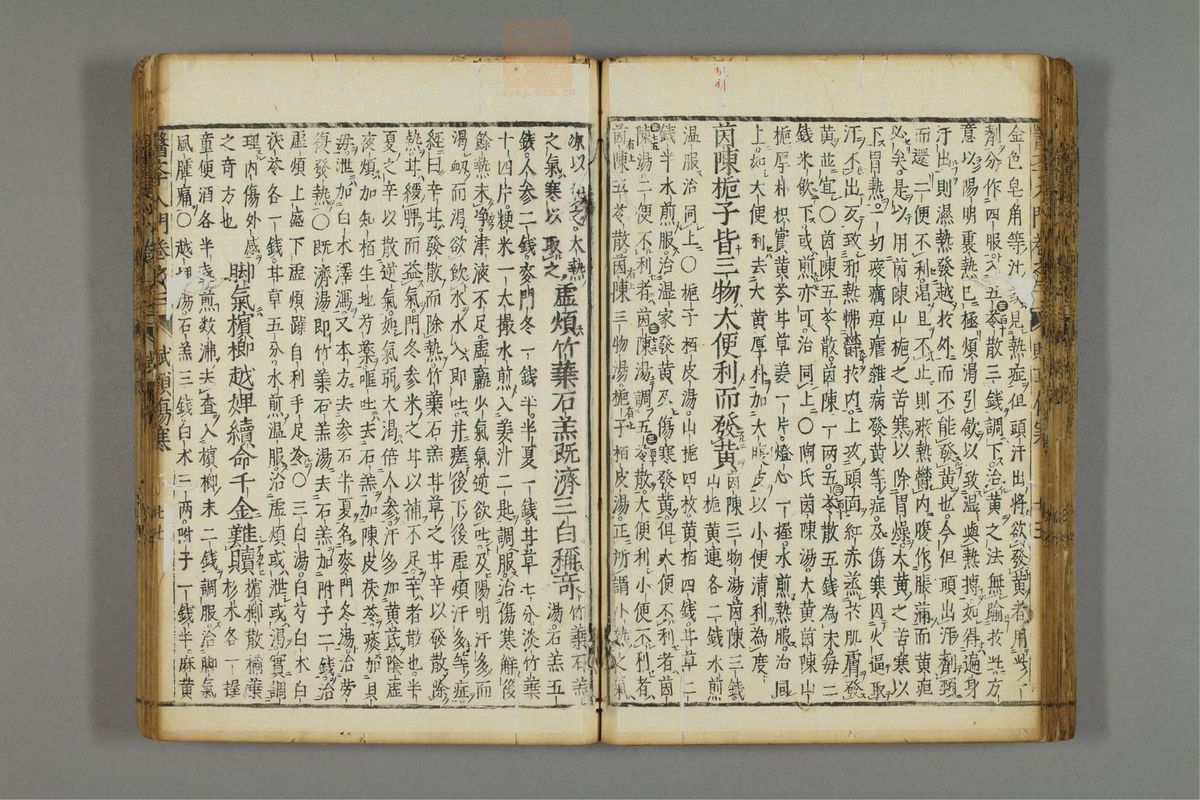 金色皂角等汁或見熱症但頭汗出將欲發黃者用此一
劑分作四服入五苓散三錢調下治黃之法無踰於此方
意以陽明裏熱已極煩渴引飲以致濕與熱搏如得遍身
汗出則濕熱發越於外而不能發黃也今但頭出汗劑頸
而還二便不利渴且不止則瘀熱鬱內腹作脹滿而黃疸
必矣是以用茵陳山梔之苦寒以除胃燥大黃之苦寒以
下胃熱一切疫癘疸瘧雜病發黃等症及傷寒因火逼取
汗不出反致邪熱怫鬱於內上攻頭面紅赤蒸於肌膚發
黃並宜〇茵陳五苓散茵陳一兩五苓散五錢為末每二
錢米飲下或煎亦可治同上〇陶氏茵陳湯大黃茵陳山
梔厚朴枳實黃芩甘草姜一片燈心一握水煎熱服治同
上如大便利去大黃厚朴加大腹皮以小便清利為度
茵陳梔子皆三物大便利而發黃茵陳三物湯茵陳三錢
山梔黃連各二錢水煎
溫服治同上〇梔子栢皮湯山梔四枚黃栢四錢甘草二
錢半水煎服治濕家發黃及傷寒發黃但大便不利者茵
陳湯二便不利者茵陳湯調五苓散大便利小便不利者
茵陳五苓散茵陳三物湯梔子栢皮湯正所謂小熱之氣
之氣寒以取之虛煩竹葉石羔既濟三白稱奇竹葉石羔
湯石羔五
錢人參二錢麥門冬一錢半半夏一錢甘草七分淡竹葉
十四片粳米一大撮水煎入姜汁二匙調服治傷寒解後
餘熱未淨津液不足虛羸少氣氣逆欲吐及陽明汗多而
渴衂而渴欲飲水水入即吐并瘥後下後虛煩汗多等症
經曰辛甘發散而除熱竹葉石羔甘草之甘辛以發散除
熱甘緩脾而益氣門冬參米之甘以補不足辛者散也半
夏之辛以散逆氣如氣弱大渴倍人參汗多加黃芪陰虛
夜煩加知栢生地芍藥嘔吐去石羔加陳皮茯苓痰加貝
毋泄加白朮澤瀉又本方去參石半夏名麥門冬湯治勞
復發熱〇既濟湯即竹葉石羔湯去石羔加附子二錢治
虛煩上盛下虛煩躁自利手足冷〇三白湯白芍白朮白
茯苓各一錢甘草五分水煎溫服治虛煩或泄或渴實調
理內傷外感之奇方也
脚氣檳榔越婢續命千金難贖檳榔散橘葉
杉木各一握
童便酒各半盞煎數沸去查入檳榔末二錢調服治脚氣
風腫痛〇越婢湯石羔三錢白朮二兩附子一錢半麻黃